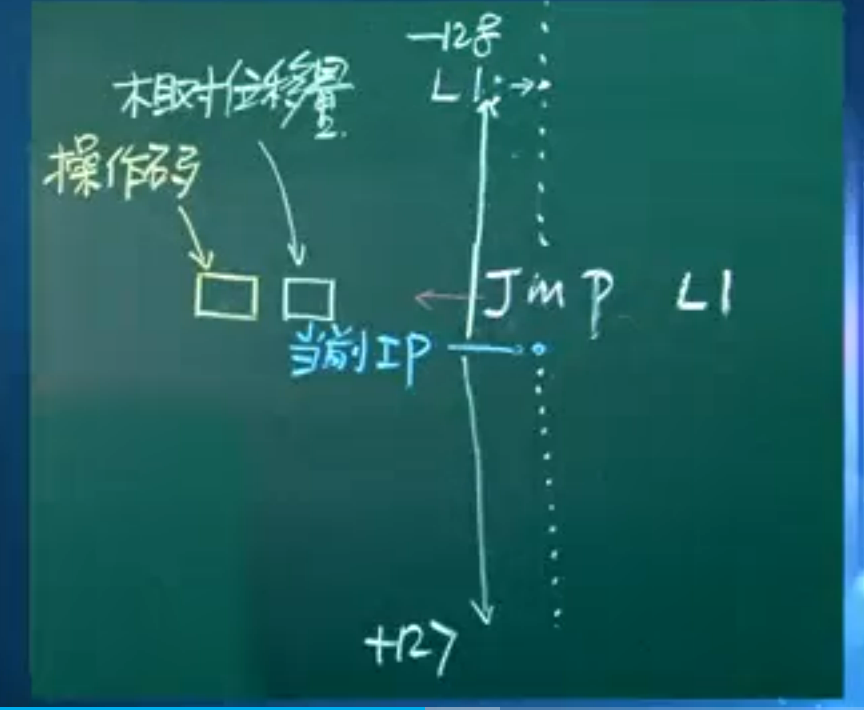 -128
相对位移量
L1:
操作码
Jmp L1
当前IP
+127